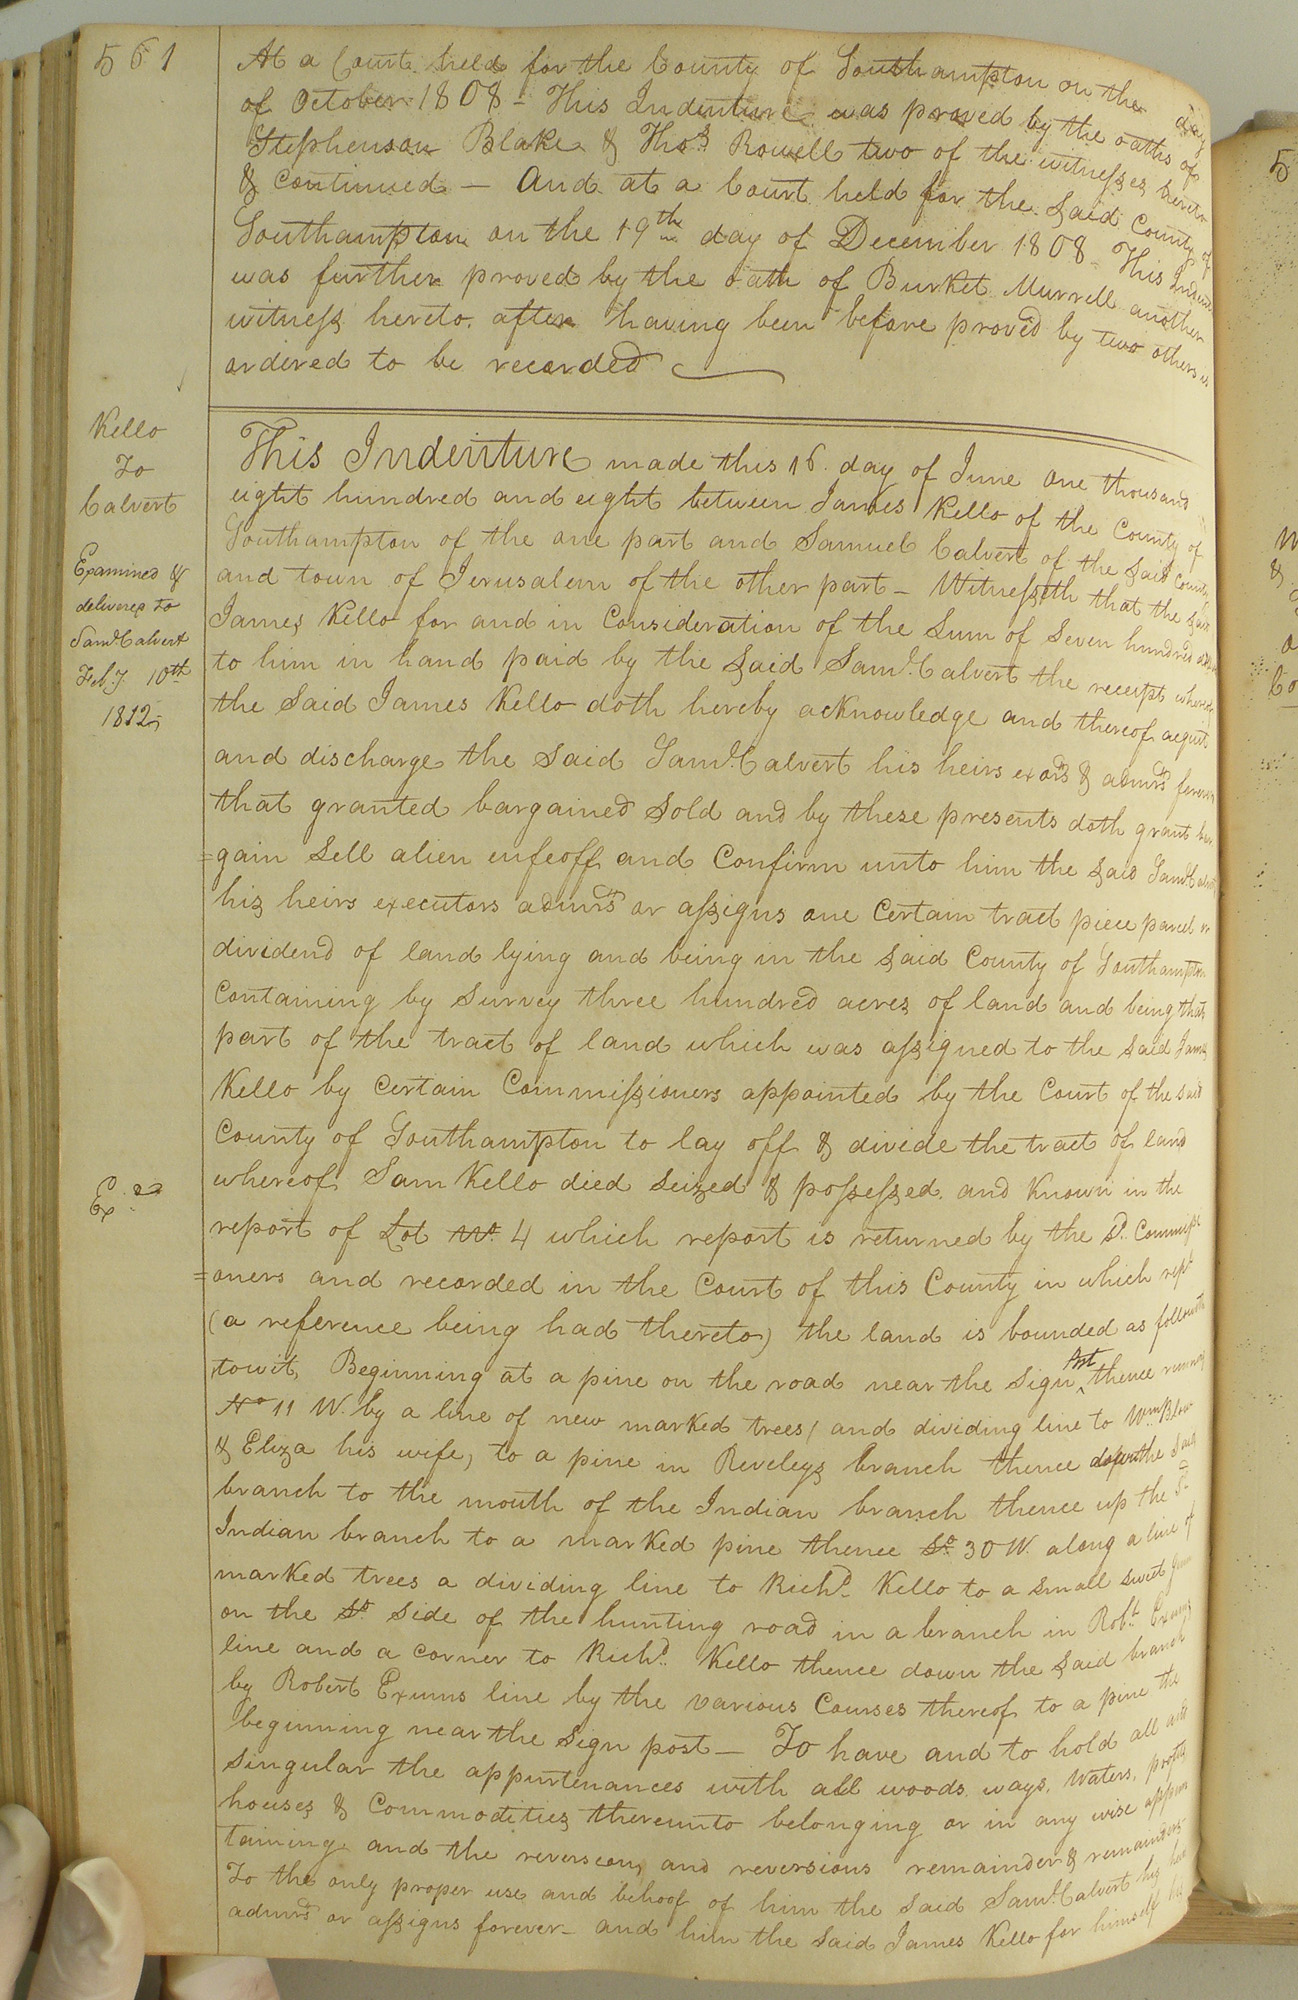 561
At a Court held for the County of Southampton on the day
of October 1808 - This Indenture was proved by the oaths of
Stephenson Blake & Thos. Rowell two of the witnesses hereto
& Continued — And at a Court held for the Said County of
Southampton on the 19th day of December 1808 - This Indent
was further proved by the oath of Burket Murrell another
witness hereto after having been before proved by two others is
ordered to be recorded
Kello
To
Calvert
Examined &
delivered to
Saml. Calvert
Feby. 10th
1812
This Indenture made this 16. day of June one thousand
eight hundred and eight between James Kello of the County of
Southampton of the one part and Samuel Calvert of the Said County
and town of Jerusalem of the other part - Witnesseth that the Said
James Kello for and in Consideration of the Sum of Seven hundred
to him in hand paid by the Said Saml. Calvert the receipt whereof
the Said James Kello doth hereby acknowledge and thereof acquit
and discharge the Said Saml. Calvert his heirs exors & admrs forever
that granted bargained Sold and by these presents doth grant bar
=gain Sell alien enfeoff and Confirm unto him the Said Saml Calvert
his heirs executors admrs or assigns one Certain tract piece parcel or
dividend of land lying and being in the Said County of Southampton
Containing by Survey three hundred acres of land and being that
part of the tract of land which was assigned to the Said James
Kello by Certain Commissioners appointed by the Court of the said
County of Southampton to lay off & divide the tract of land
whereof Sam Kello died Seized & possessed and Known in the
Ex:d
report of Lot No. 4 which report is returned by the Sd. Commissi
=oners and recorded in the Court of this County in which rept
(a reference being had thereto) the land is bounded as followeth
towit, Beginning at a pine on the road near the Sign Post thence running
No 11 W. by a line of new marked trees (and dividing line to Wm Blow
& Eliza his wife) to a pine in Reveleys branch thence down the Said
branch to the mouth of the Indian branch thence up the Sd.
Indian branch to a marked pine thence So 30 W. along a line of
marked trees a dividing line to Richd. Kello to a Small Sweet Gum
on the So Side of the hunting road in a branch in Robt. Exums
line and a Corner to Richd. Kello thence down the Said branch
by Robert Exums line by the various Courses thereof to a pine the
beginning near the Sign post — To have and to hold all and
Singular the appurtenances with all woods, ways, Waters, profits
houses & Commodities thereunto belonging or in any wise apper
taining and the reversion and reversions remainder & remainders
To the only proper use and behoof of him the Said Saml. Calvert his heirs
admrs or assigns forever - and him the Said James Kello for himself his